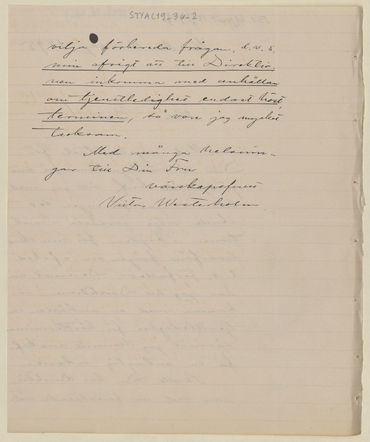 STYA(19-34-2
vilja förbereda frågan, d.v.s.
min afsigt att till Direktio-
nen inkomma med anhållan
om tjenstledighet endast höst
terminen, så vore jag mycket
tacksam.
Med många helsnin-
gar till Din Fru
vänskapsfullt
Victor Westerholm